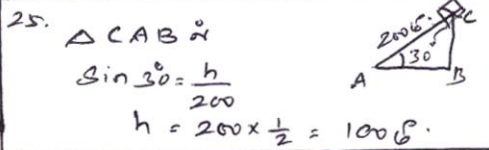 25.
△ CAB ல்
Sin 30° = h/200
h = 200 × 1/2 = 100மீ.
200மீ.
C
30°
A B